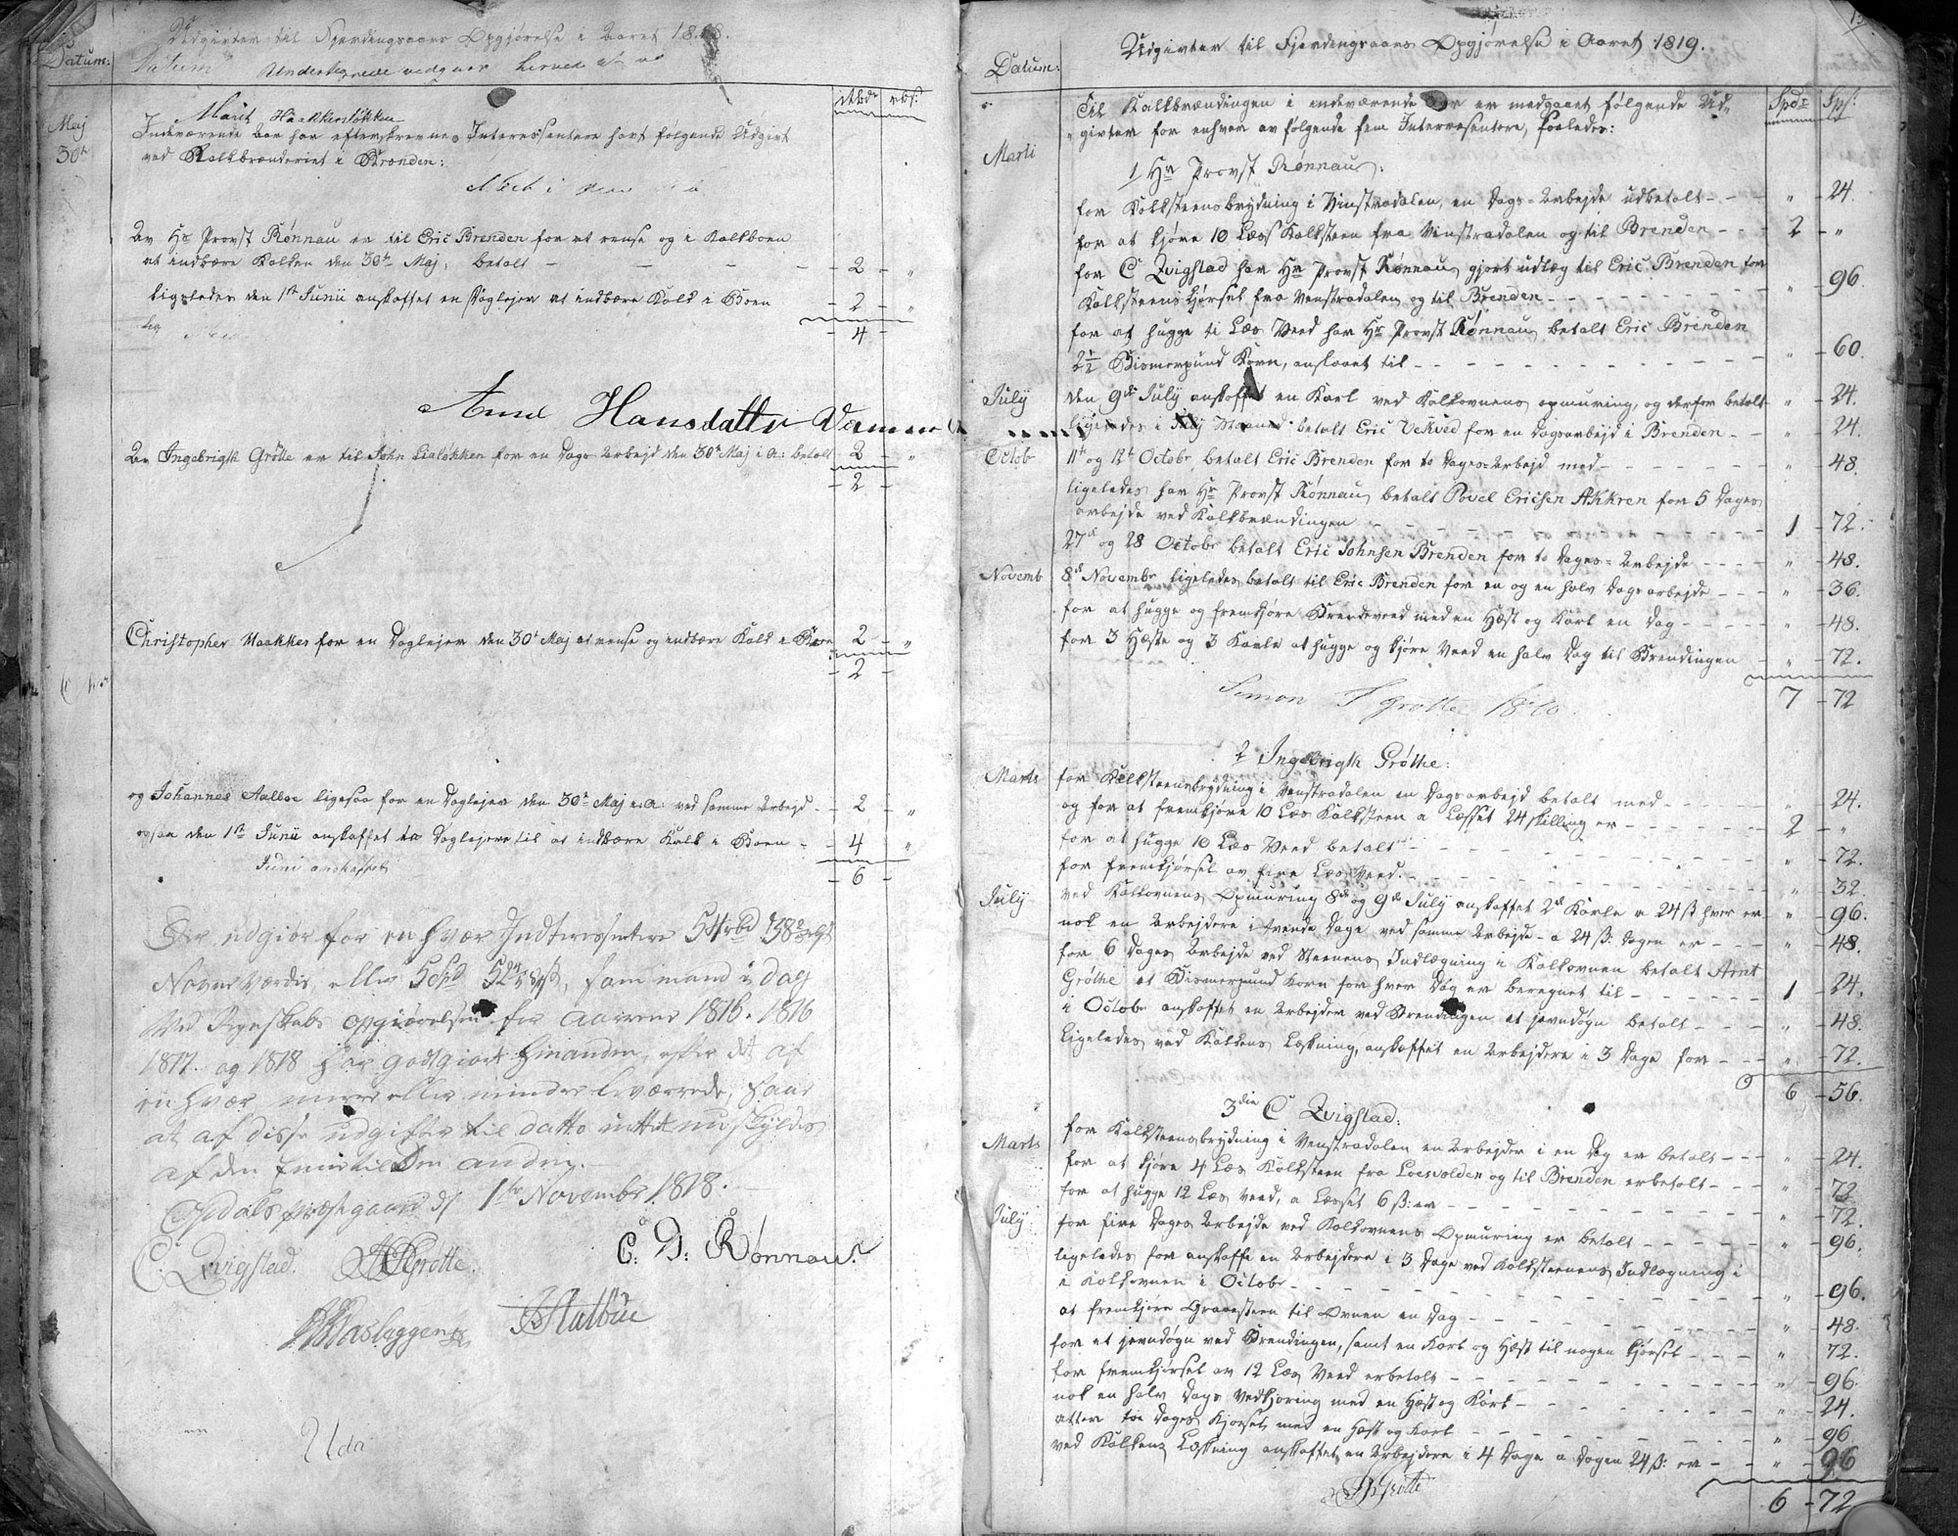 Udgivter til Fjerdingsaars Opgjørelse i Aaret 1818.
Datum:
Datum Undertegnede vedgaar herved at
Rbd. rbs:
Maj
30te
Marit Haakkenløkken
Indeværende Aar har efterskrevne Interessentere havt følgende Udgivt
ved Kalkbrænderiet i Brenden:
Av Hr Provst Rønnau er til Eric Brenden for at rense og i Kalkboen
at indbære Kalken den 30te Maj, betalt - 2 - "
ligeledes den 1ste Junii anskaffet en Daglejer at indbære Kalk i Boen - 2 - "
- 4 -
Anne Hansdatter
Av Ingebrigth Grøtte er til John Lialøkken for en Dags Arbejd den 30te Maj i a: betalt 2 - "
- 2 -
Christopher Maakken for en Daglejer den 30te Maj at rense og indbære Kalk i Boen 2 - "
- 2 -
og Johannes Aalboe ligesaa for en Daglejer den 30te Maj e: a: ved samme Arbejd - 2 - "
ogsaa den 1ste Junii anskaffet to Daglejere til at indbære Kalk i Boen - 4 "
Juni anskaffet
- 6 -
Der udgiør for en hvær Indteressentere
Navneværdie, eller 5 Spd som mand i dag
Ved Regnskabs opgiørelsen for aarene 1816. 1816
1817. og 1818 har godtgiort hinanden, efter det af
en hvær mere eller mindre leverrede, saa
at af disse udgifter til datto intet nu skyldes
af den Ene til Den anden.
Opdals præstgaard d. 1ste November 1818.
C. Qvigstad. Grøtte. C: D: Rønnau.
Aalbue
Uda
Udgivter til Fjerdingsaars Opgjørelse i Aaret 1819.
Datum:
Spd: Sp:
Til Kalkbrændingen i indeværende Aar er medgaaet følgende Ud-
givter for enhver av følgende fem Interressentere, saaledes:
Marti
1 Hr Provst Rønnau:
for Kalksteensbrydning i Vinstradalen, en Dags-Arbejde udbetalt - - " - 24.
for at kjøre 10 Læs Kalksteen fra Vinstradalen og til Brenden - - 2 - "
for C Qvigstad har Hr Provst Rønnau gjort udlæg til Eric Brenden for
Kalksteens kjørsel fra Venstradalen og til Brenden - - - " - 96.
for at hugge ti Læs Veed har Hr Provst Rønnau betalt Eric Brenden
2½ Bismerpund Korn, anslaaet til - - - " - 60.
July den 9de July anskaffet en Karl ved Kalkovnens opmuring, og derfor betalt " - 24.
ligeledes i July Maaned betalt Eric Vekved for en Dagsarbejd i Brenden - " - 24.
Octob 11te og 12te Octobr betalt Eric Brenden for to Dages-Arbejd med - - " - 48.
ligeledes har Hr Provst Rønnau betalt Povel Ericsen Akkren for 5 Dages
arbejde ved Kalkbrændingen - - - 1 - 72.
27de og 28 Octobr betalt Eric Johnsen Brenden for to Dages-Arbejde - - - " - 48.
Novemb 8de Novembr ligeledes betalt til Eric Brenden for en og en halv Dagsarbejde - - " - 36.
for at hugge og fremkjøre Brendeveed med en Hæst og Karl en Dag - - - " - 48.
for 3 Hæste og 3 Karle at hugge og kjøre Veed en halv Dag til Brendingen - " - 72.
7 - 72
Simon Grøtte
2 Ingebrigth Grøthe:
Marts for Kalksteensbrydning i Venstradalen en Dagsarbejd betalt med - - " - 24.
og for at fremkjøre 10 Læs Kalksteen a Læsset 24 skilling er - - - 2 - "
for at hugge 10 Læs Veed betalt - - - " - 72.
for fremkjørsel av fire Læs Veed. - - - " - 32
July ved Kalkovnens Opmuring 8de og 9de July anskaffet 2de Karle a 24 ß hver er " - 96.
nok en Arbejdere i tvende Dage ved samme Arbejde a 24 ß: Dagen er - - " - 48
for 6 Dages Arbejde ved Steenens Indlægning i Kalkovnen betalt Arnt
Grøthe et Bismerpund Korn for hver Dag er beregnet til - - - 1 - 24.
i Octobr anskaffet en Arbejder ved Brendingen et jevndøgn betalt - - - " - 48.
ligeledes ved Kalkens Læskning, anskaffet en Arbejdere i 3 Dage for - - " - 72.
6 - 56.
3die C Qvigstad:
Marts for Kalksteensbrydning i Venstradalen en Arbejder i en Dag er betalt - - " - 24.
for at kjøre 4 Læs Kalksteen fra Loesvolden og til Brenden erbetalt - - - " - 72
for at hugge 12 Læs Veed, a Læsset 6 ß: er - - - " - 72.
July for fire Dages Arbejde ved Kalkovnens Opmuring er betalt - - - " - 96.
ligeledes for anskaffe en Arbejdere i 3 Dage ved Kalksteenens Indlægning i
i Kalkovnen i Octobr - - - " - 96.
at fremkjøre Graaesteen til Ovnen en Dag - - - " - 48.
for et jevndøgn ved Brendingen, samt en Karl og Hæst til nogen kjørsel - - " - 72.
for fremkjørsel av 12 Læs Veed erbetalt - - - " - 96.
nok en halv Dags Vedkjøring med en Hæst og Karl - - - " - 24.
atter toe Dages Kjørsel med en Hæst og Karl - - - " - 96.
ved Kalkens Læskning anskaffet en Arbejdere i 4 Dage a Dagen 24 ß: er - - " - 96
Grøtte
6 - 72